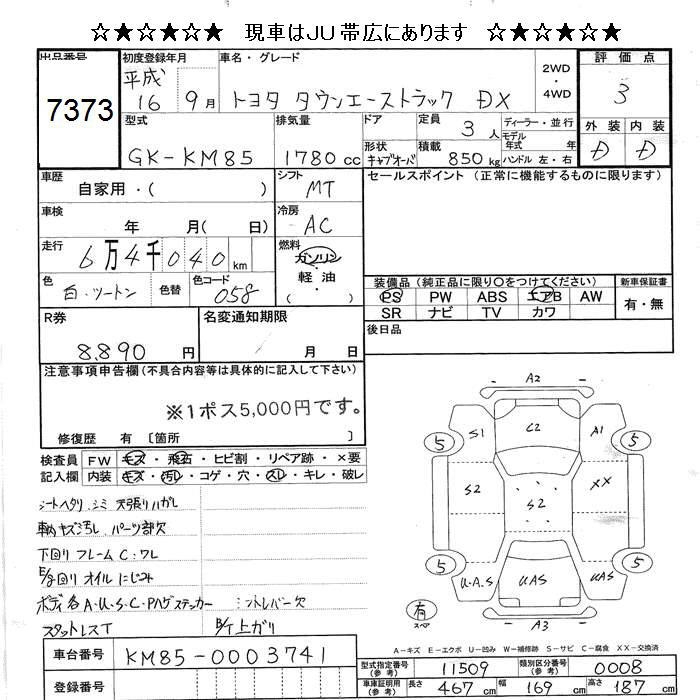 ☆★☆★☆★ 現車はJU帯広にあります ☆★☆★☆★
出品番号
7373
初度登録年月
平成
16 9月
車名・グレード
トヨタ タウンエーストラック DX
2WD
・
4WD
評価点
3
型式
GK-KM85
排気量
1780cc
ドア
定員
3人
形状
キャブオーバ
積載
850kg
ディーラー・並行
モデル
年式 年
ハンドル 左・右
外装
内装
D
D
車歴
自家用・( )
シフト
MT
セールスポイント(正常に機能するものに限ります)
車検
年 月( 日)
冷房
AC
走行
6万4千040km
燃料
ガソリン
軽油
・
( )
色
白・ツートン
色替
色コード
058
装備品(純正品に限り○をつけてください)
新車保証書
PS PW ABS エアB AW
SR ナビ TV カワ
有・無
R券
8,890円
名変通知期限
月 日
後日品
注意事項申告欄(不具合内容等は具体的に記入して下さい)
※1ポス5,000円です。
修復歴 有〔箇所 〕
検査員
記入欄
FW キズ・飛石・ヒビ割・リペア跡・×要
内装 キズ・汚レ・コゲ・穴・スレ・キレ・破レ
シートヘタリ シミ 天張りハガレ
車内キズ汚レ パーツ部欠
下回り フレーム C・ワレ
E/g回り オイルにじみ
ボディ各A・U・S・C・P ハゲ ステッカー
スタットレスT
A2
S1
C2
A1
5
5
S2
S2
XX
5
5
U.A.S
UAS
UAS
有
スペア
A3
A-キズ E-エクボ U-凹み W-補修跡 S-サビ C-腐食 XX-交換済
車台番号
KM85-0003741
登録番号
型式指定番号
(参考)
11509
類別区分番号
(参考)
0008
車庫証明用
(参考)
長さ
467cm
幅
169cm
高さ
187cm